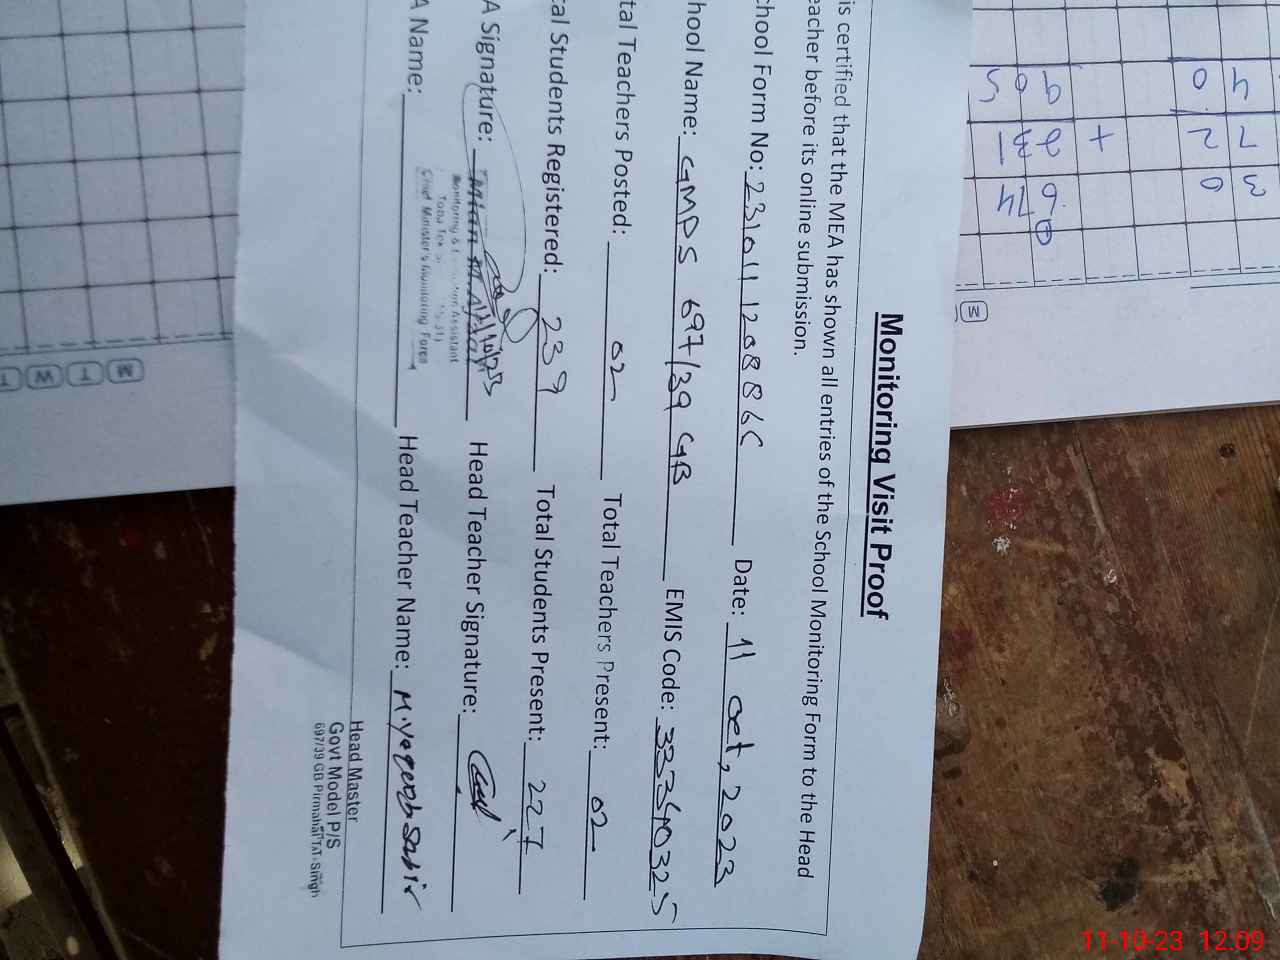 Monitoring Visit Proof
is certified that the MEA has shown all entries of the School Monitoring Form to the Head
eacher before its online submission.
chool Form No: 231011120886C Date: 11 Oct, 2023
hool Name: GMPS 697/39 GB EMIS Code: 33340325
tal Teachers Posted: 02 Total Teachers Present: 02
tal Students Registered: 239 Total Students Present: 227
A Signature: Head Teacher Signature:
Monitoring & Assistant
Toba Tek
Chief Minister's Monitoring Force
A Name: Head Teacher Name: M.Yaqoob Sabir
Head Master
Govt Model P/S
697/39 GB Pirmahal T.T.Singh
M T W T
M
4 0
7 2
3 0
905
+ 231
674
11-10-23 12:09